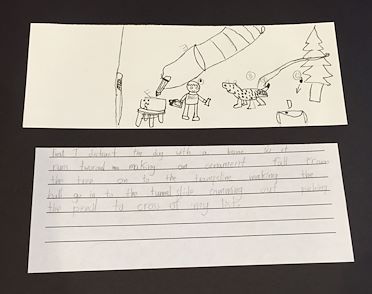 first I distract the dog with a bone so it
runs twords me making an ornament fall from
the tree on to the trampoline making the
ball go in to the tunnel slide comming out pushing
the pencil to cross of my list.